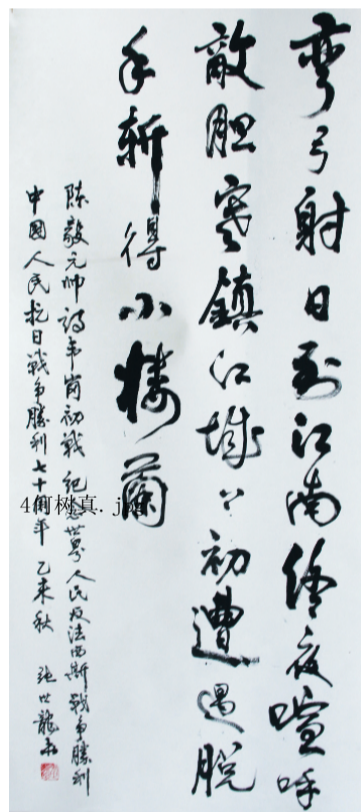 弯弓射日到江南终夜喧呼
敵胆寒鎮江城下初遭遇脱
手斬得小楼蘭
陈毅元帅诗韦岗初战 纪念世界人民反法西斯戰争勝利
中國人民抗日戰争勝利七十周年 乙未秋 張世龍书
4何树真.j